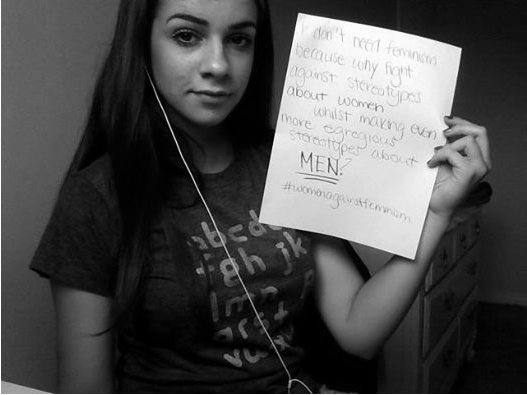 I don't need feminism
because why fight
against stereotypes
about women
whilst making even
more egregious
stereotypes about
MEN?
#womenagainstfeminism
abcde
fgh ijk
lmn
qrst
vu